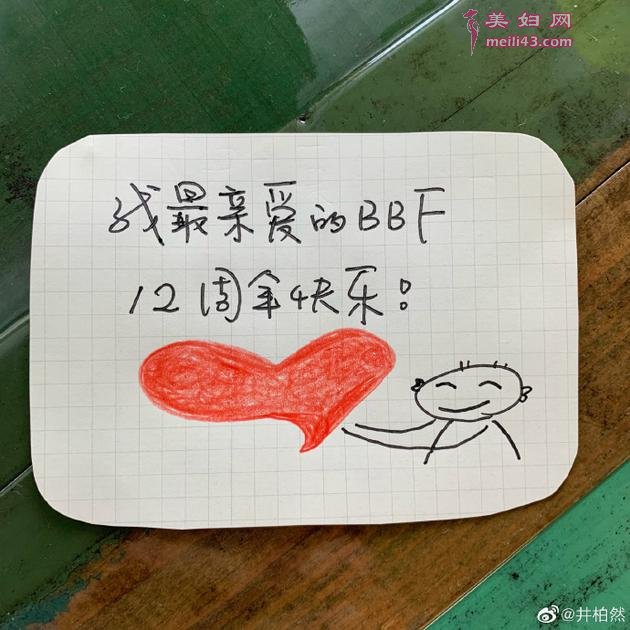 美妇网
meili43.com
我最亲爱的BBF
12周年快乐!
@井柏然